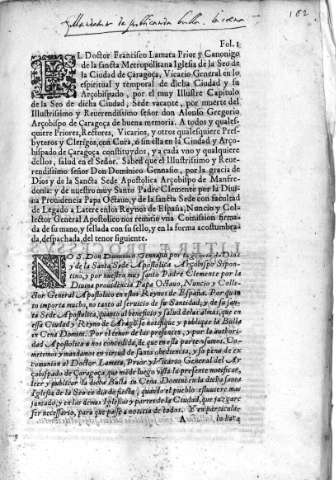 162
Fol. 1
EL Doctor Francisco Lamata Prior y Canonigo
de la sancta Metropolitana Iglesia de la Seo de
la Ciudad de Çaragoça, Vicario General en lo
espiritual y temporal de dicha Ciudad y su
Arçobispado, por el muy Illustre Capitulo
de la Seo de dicha Ciudad, Sede vacante, por muerte del
Illustrissimo y Reuerendissimo señor don Alonso Gregorio
Arçobispo de Çaragoça de buena memoria. A todos y quales-
quiere Priores, Rectores, Vicarios, y otros qualesquiere Pres-
byteros y Clerigos, con Cura, ò sin ella en la Ciudad y Arço-
bispado de Çaragoça constituydos, y a cada vno y qualquiere
dellos, salud en el Señor. Sabed que el Illustrissimo y Reue-
rendissimo señor Don Domingo Gennasio, por la gracia de
Dios y de la Sancta Sede Apostolica Arçobispo de Manfre-
donia: y de nuestro muy Santo Padre Clemente por la Diui-
na Prouidencia Papa Octauo, y de la sancta Sede con facultad
de Legado a Latere en los Reynos de España, Nuncio y Col-
lector General Apostolico nos remitio vna Comission firma-
da de su mano, y sellada con su sello, y en la forma acostum-
brada, despachada, del tenor siguiente.
NOS Don Domingo Gennasio por la gracia de Dios
y de la Santa Sede Apostolica Arçobispo Sipon-
tino, y por nuestro muy santo Padre Clemente por la
Diuina prouidencia Papa Octauo, Nuncio y Colle-
ctor General Apostolico en estos Reynos de España. Por quan-
to importa mucho, no tanto al seruicio de su Sanidad, y de su san-
ta Sede Apostolica, quanto al beneficio y salud de las almas, que en
essa Ciudad y Reyno de Aragõ se notifique y publique la Bulla
in Cena Domini. Por el tenor de las presentes, y por la authori-
dad Apostolica a nos concedida, de que en esta parte vsamos. Co-
metemos y mandamos en virtud de santa obediencia, y so pena de ex-
comunion al Doctor Lamata, Prior y Vicario General del Ar-
çobispado de Çaragoça, que añde luego vista la presente notificar,
leer y publicar la dicha Bulla in Cena Domini en la dicha santa
Iglesia de la Seo en dia de fiesta, quando el pueblo estuuiere mas
juntado, y en las demas Iglesias y partes de la Ciudad, que juzgare
ser necessario, para que passe a noticia de todos. Y en particular
A lo hara